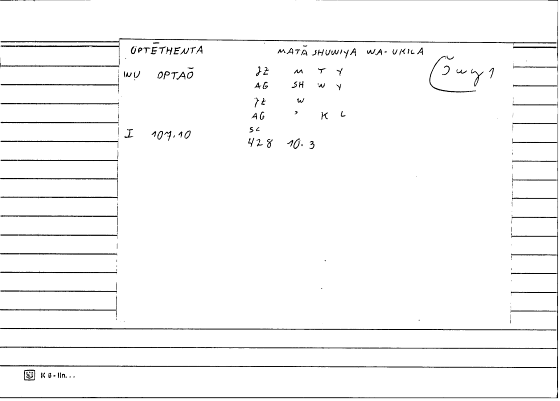 OPTĒTHENTA MATĀ SHUWIYA WA-UKILA
INU OPTAŌ ȷƵ M T Y
AG SH W Y
ȷƵ W
AG ' K L
I 107.10 SC
428 10.3
K 8 - lin...